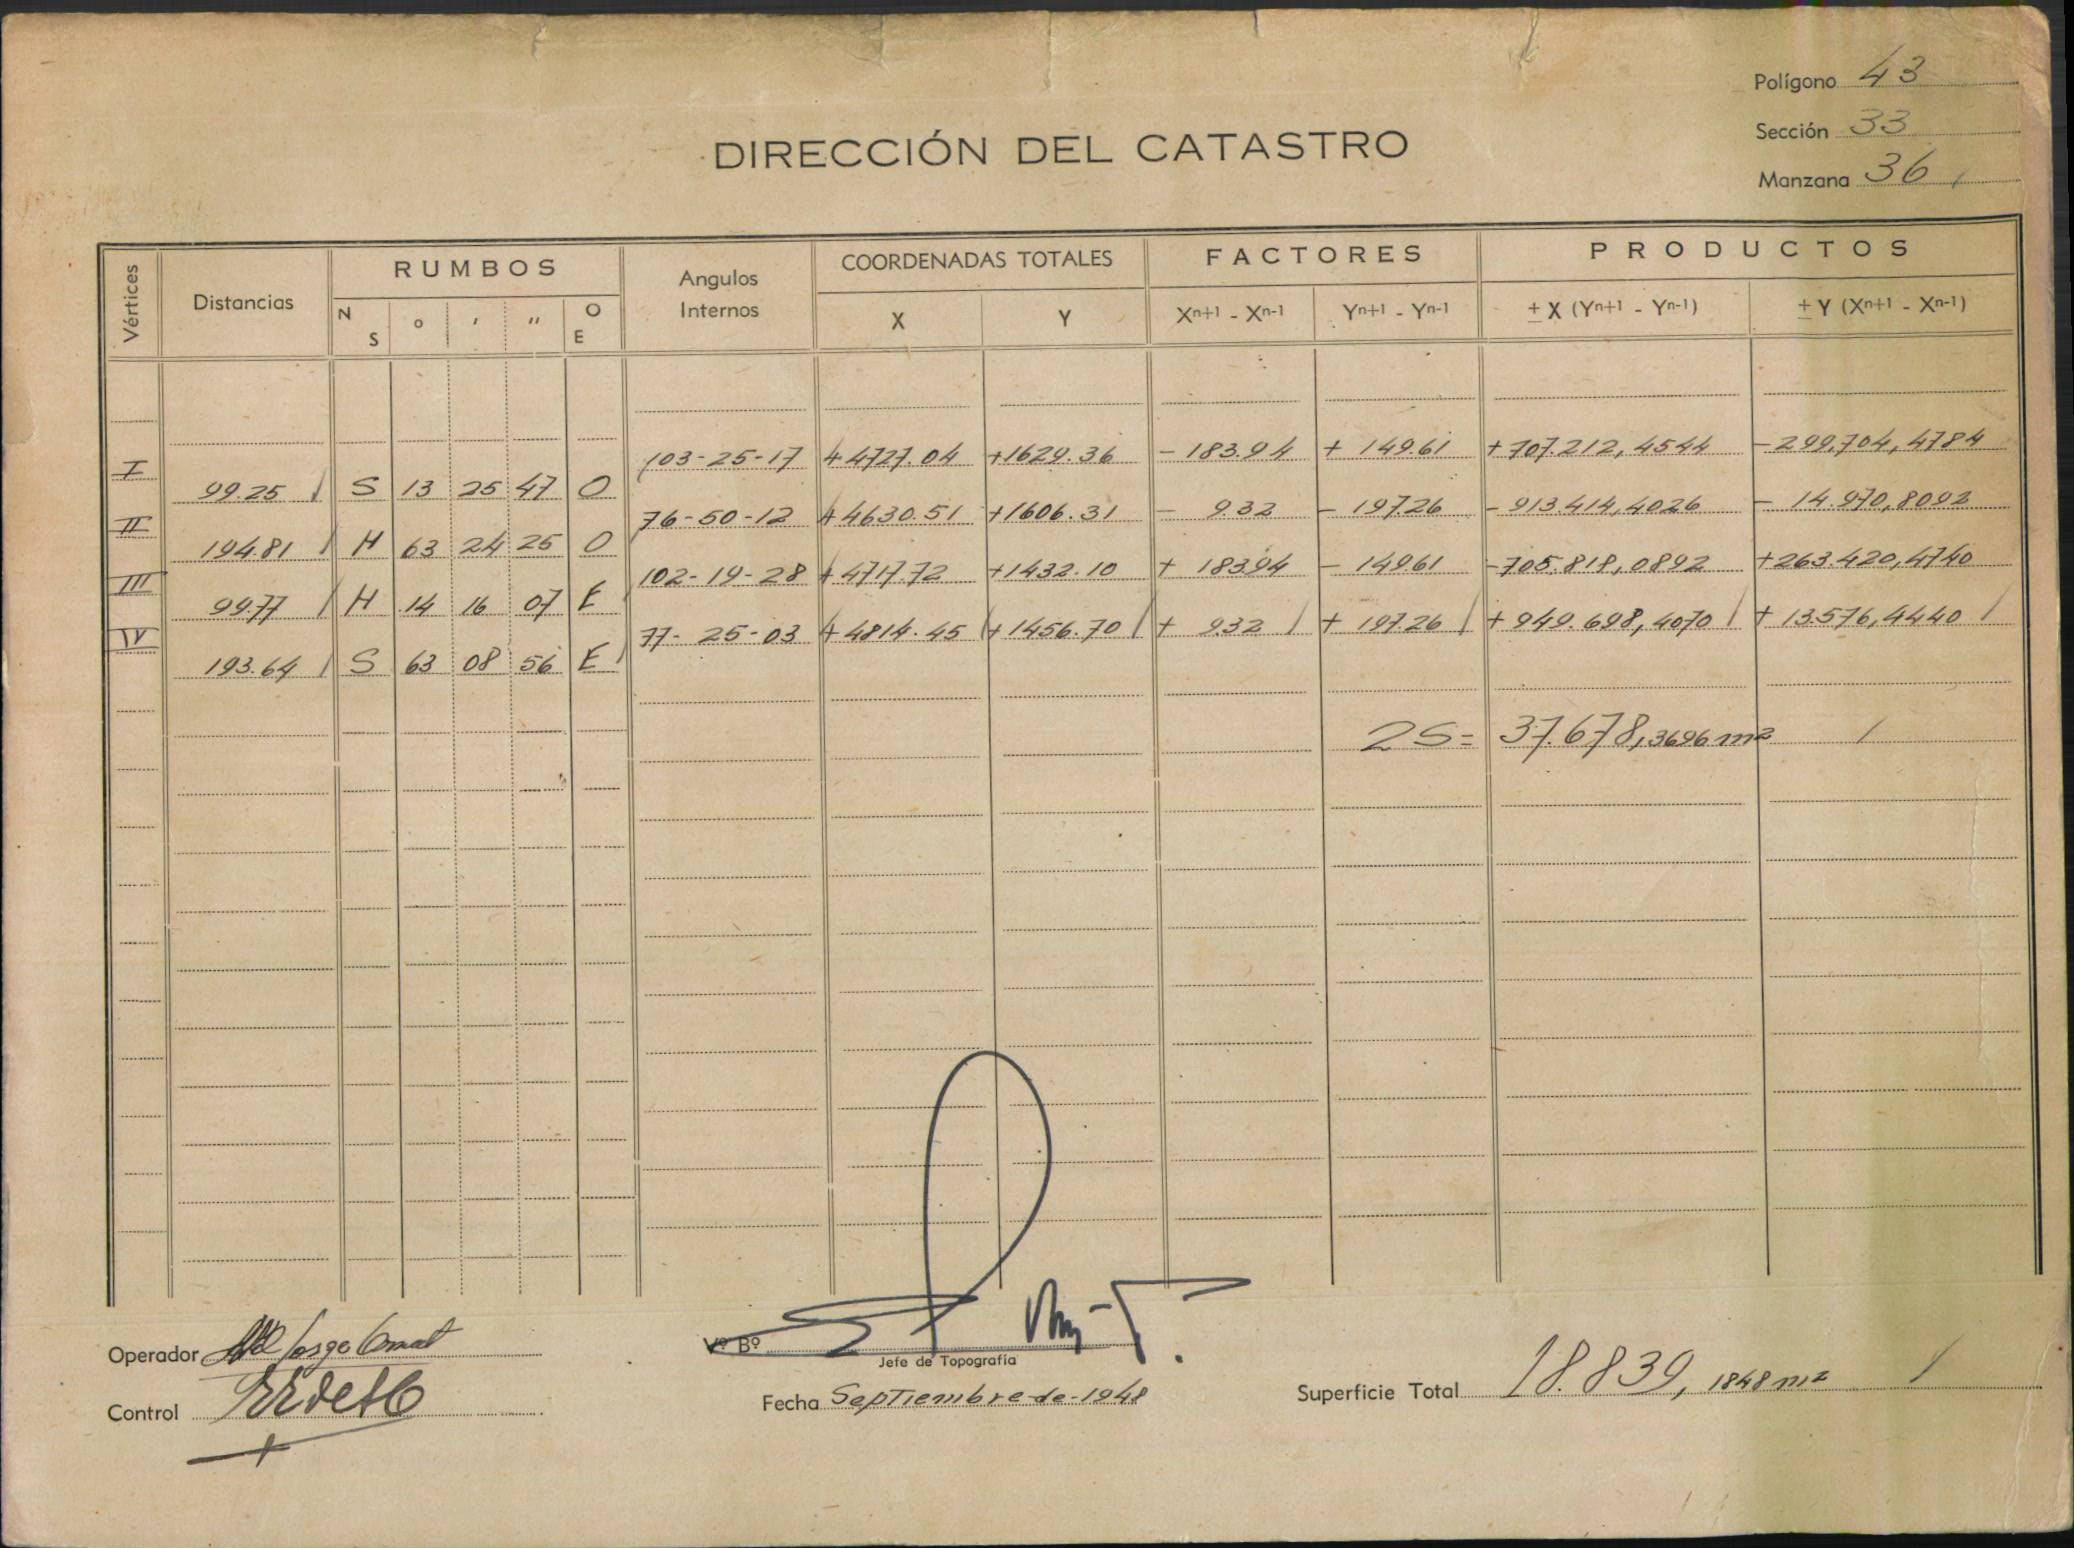 Polígono 43
Sección 33
Manzana 36
DIRECCIÓN DEL CATASTRO
Vértices Distancias RUMBOS Angulos Internos COORDENADAS TOTALES FACTORES PRODUCTOS
N S ° ' '' O E X Y Xn+1 - Xn-1 Yn+1 - Yn-1 ± X (Yn+1 - Yn-1) ± Y (Xn+1 - Xn-1)
I 103-25-17 +4727.04 +1629.36 - 183.94 + 149.61 +707.212,4544 -299.704,4784
99.25 S 13 25 47 O
II 76-50-12 +4630.51 +1606.31 - 9.32 - 197.26 -913.414,4026 - 14.970,8092
194.81 N 63 24 25 O
III 102-19-28 +4717.72 +1432.10 + 183.94 - 149.61 -705.818,0892 +263.420,4740
99.77 N 14 16 07 E
IV 77-25-03 +4814.45 +1456.70 + 9.32 + 197.26 +949.698,4070 + 13.576,4440
193.64 S 63 08 56 E
2S= 37.678,3696 m2
Operador
Vº Bº
Jefe de Topografía
Control
Fecha Septiembre-de-1948
Superficie Total 18.839,1848 m2